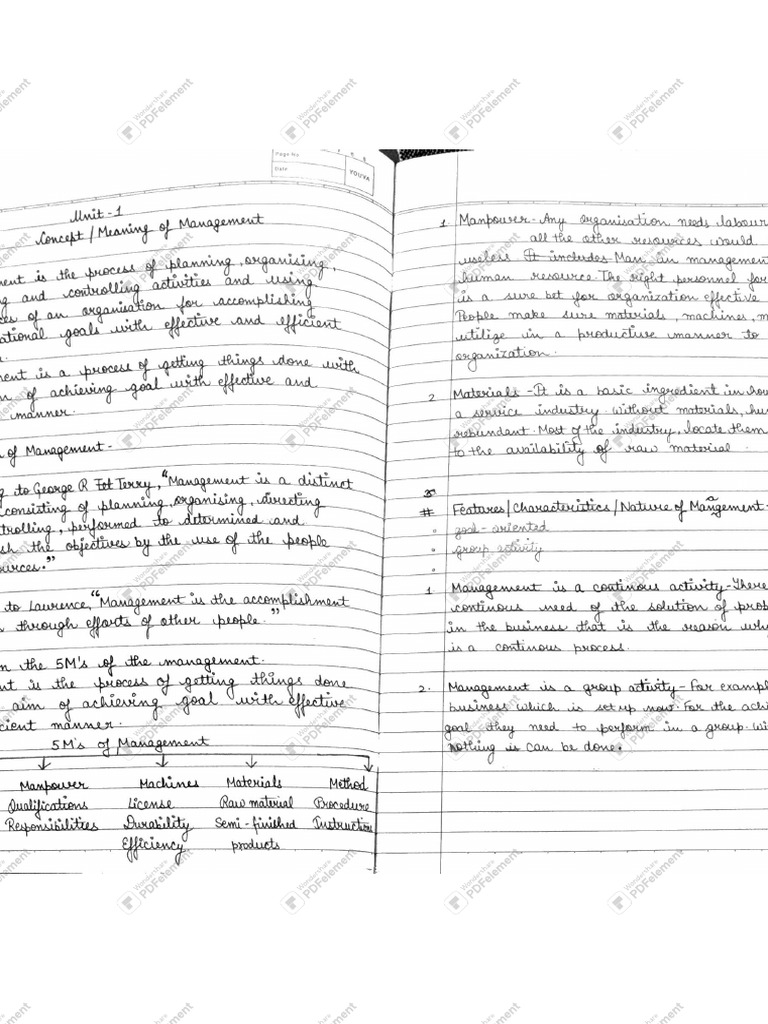 Page No
Date
YOUVA
Unit-1
Concept/Meaning of Management
ment is the process of planning, organising,
and controlling activities and using
ces of an organisation for accomplishing
ational goals with effective and efficient
ment is a process of getting things done with
of achieving goal with effective and
manner.
of Management-
to George R Terry, "Management is a distinct
consisting of planning, organising, directing
trolling, performed to determined and
sh the objectives by the use of the people
ources."
to Laurence, "Management is the accomplishment
through efforts of other people."
the 5M's of the management.
nt is the process of getting things done
aim of achieving goal with effective
icient manner.
5M's of Management
Manpower Machines Materials Method
Qualifications License Raw material Procedure
Responsibilities Durability Semi-finished Instruction
Efficiency products
1 Manpower-Any organisation needs labour
all the other resources would
useless It includes Man, in management
human resource. The right personnel for
is a sure bet for organization effective
People make sure materials, machines, m
utilize in a productive manner to
organization.
2 Materials-It is a basic ingredient in
a service industry. Without materials, hu
redundant. Most of the industry, locate them
to the availability of raw material.
# Features/Characteristics/Nature of Mangement-
goal-oriented
group activity
1 Management is a continous activity-There
continous need of the solution of prob
in the business that is the reason
is a continous process.
2. Management is a group activity-For example
business which is set up now. For the achi
goal they need to perform in a group. Wi
nothing is can be done.
Wondershare PDFelement